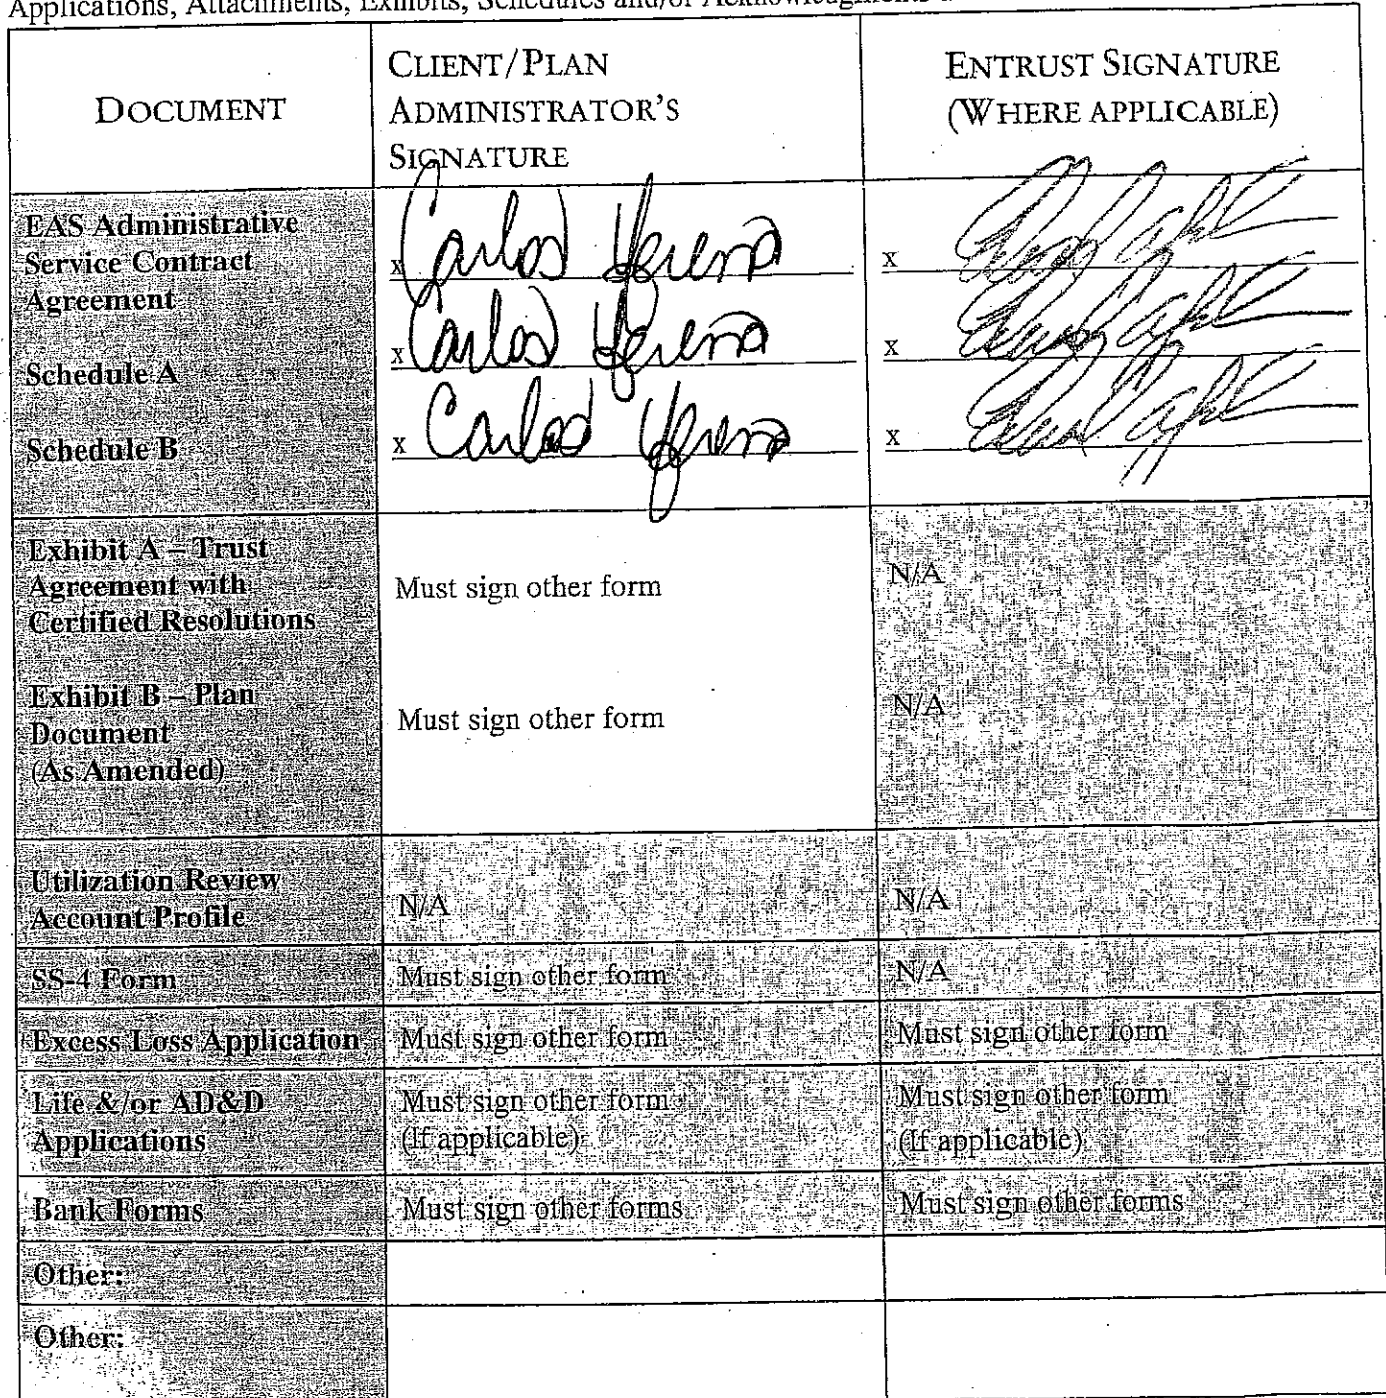 Applications, Attachments, Exhibits, Schedules and/or Acknowledgments
DOCUMENT
CLIENT/PLAN
ADMINISTRATOR'S
SIGNATURE
ENTRUST SIGNATURE
(WHERE APPLICABLE)
EAS Administrative
Service Contract
Agreement
x Carlos
x
Schedule A
x Carlos
x
Schedule B
x Carlos
x
Exhibit A – Trust
Agreement with
Certified Resolutions
Must sign other form
N/A
Exhibit B – Plan
Document
(As Amended)
Must sign other form
N/A
Utilization Review
Account Profile
N/A
N/A
SS-4 Form
Must sign other form
N/A
Excess Loss Application
Must sign other form
Must sign other form
Life &/or AD&D
Applications
Must sign other form
(If applicable)
Must sign other form
(If applicable)
Bank Forms
Must sign other forms
Must sign other forms
Other:
Other: